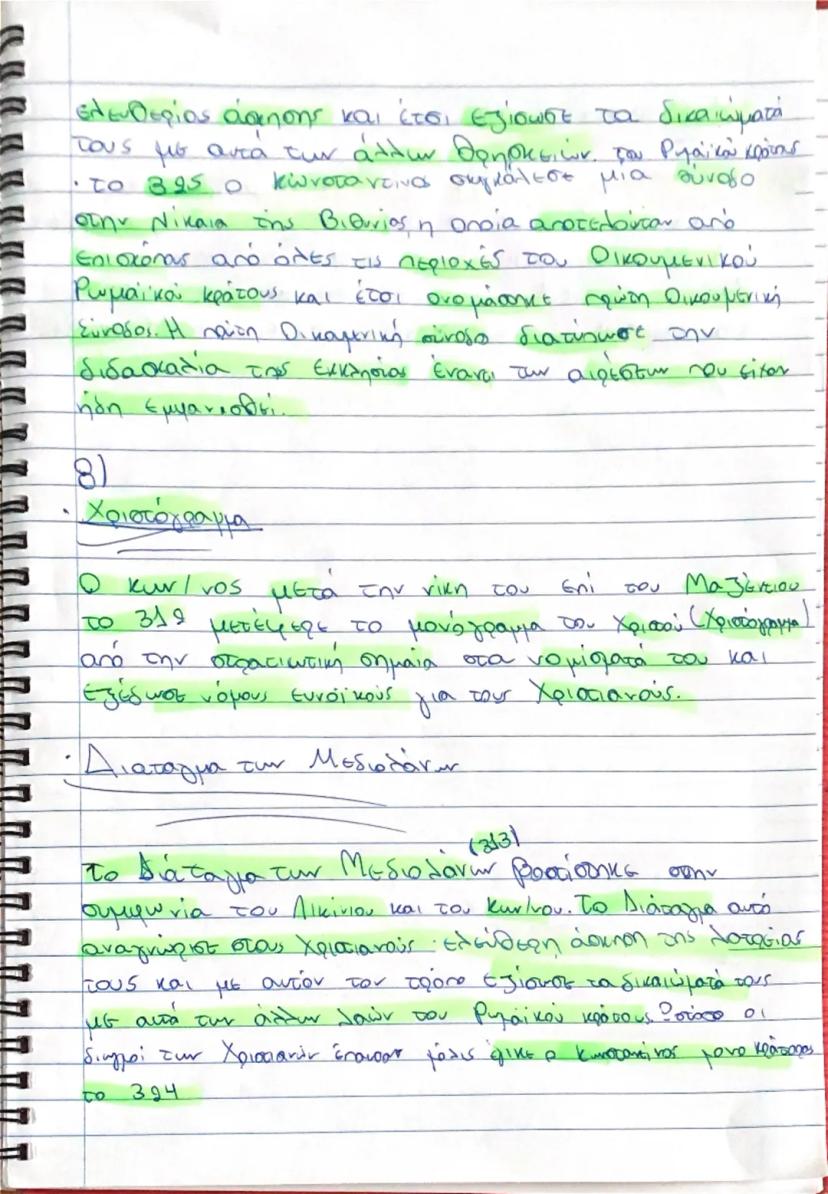 ελευθερίας άσκησης και έτσι εξίσωσε τα δικαιώματά
τους με αυτά των άλλων θρησκειών του Ρωμαϊκού κράτους
· το 325 ο Κωνσταντίνος συγκάλεσε μια σύνοδο
στην Νίκαια της Βιθυνίας, η οποία αποτελούνταν από
επισκόπους από όλες τις περιοχές του Οικουμενικού
Ρωμαϊκού κράτους και έτσι ονομάστηκε πρώτη Οικουμενική
Σύνοδος. Η πρώτη Οικουμενική σύνοδο διατύπωσε την
διδασκαλία της Εκκλησίας έναντι των αιρέσεων που είχαν
ήδη εμφανισθεί.
8)
· Χριστόγραμμα
Ο Κων/νος μετά την νίκη του επί του Μαξέντιου
το 312 μετέφερε το μονόγραμμα του Χριστού (Χριστόγραμμα)
από την στρατιωτική σημαία στα νομίσματά του και
εξέδωσε νόμους ευνοϊκούς για τους Χριστιανούς.
· Διαταγμα των Μεδιολάνων
(313)
Το Διάταγμα των Μεδιολάνων βασίσθηκε στην
συμφωνία του Λικίνιου και του Κων/νου. Το Διάταγμα αυτό
αναγνώρισε στους Χριστιανούς ελεύθερη άσκηση της λατρείας
τους και με αυτόν τον τρόπο εξίσωσε τα δικαιώματά τους
με αυτά των άλλων λαών του Ρωμαϊκού κράτους. Ωστόσο οι
διωγμοί των Χριστιανών έπαυσαν μόλις έγινε ο Κωνσταντίνος μονοκράτορας
το 324